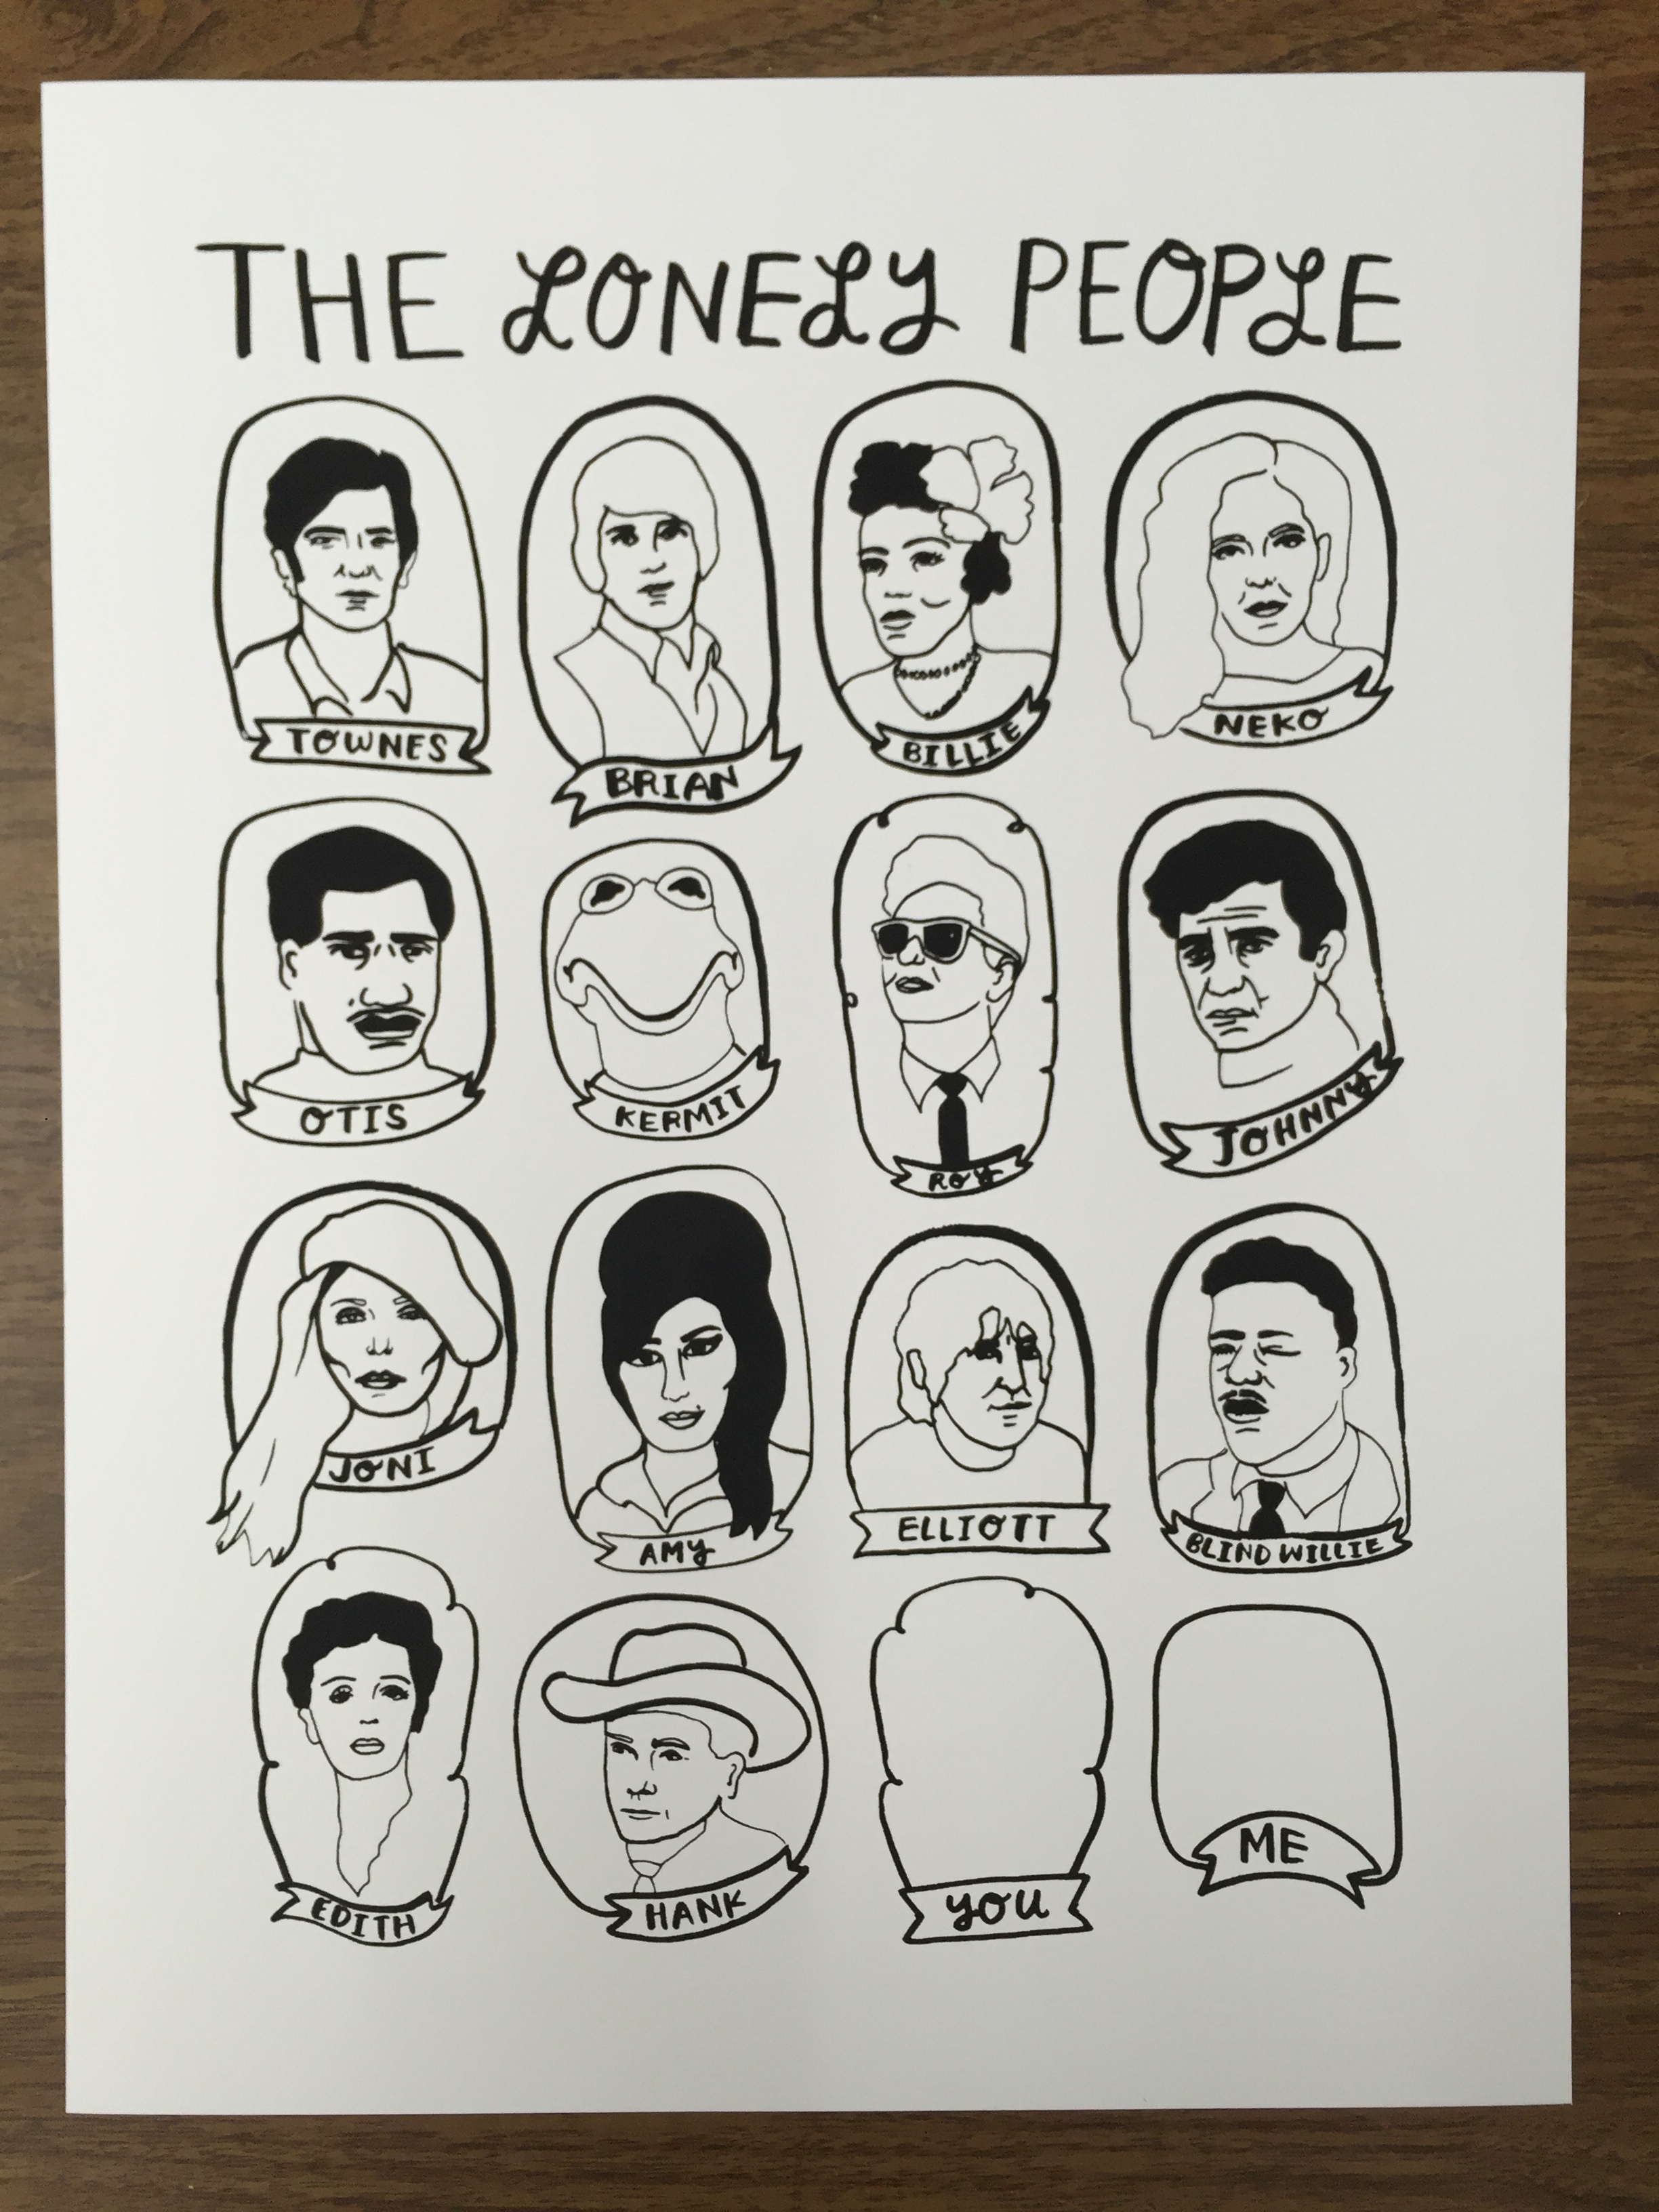 THE LONELY PEOPLE
TOWNES
BRIAN
BILLIE
NEKO
OTIS
KERMIT
ROY
JOHNNY
JONI
AMY
ELLIOTT
BLIND WILLIE
EDITH
HANK
YOU
ME